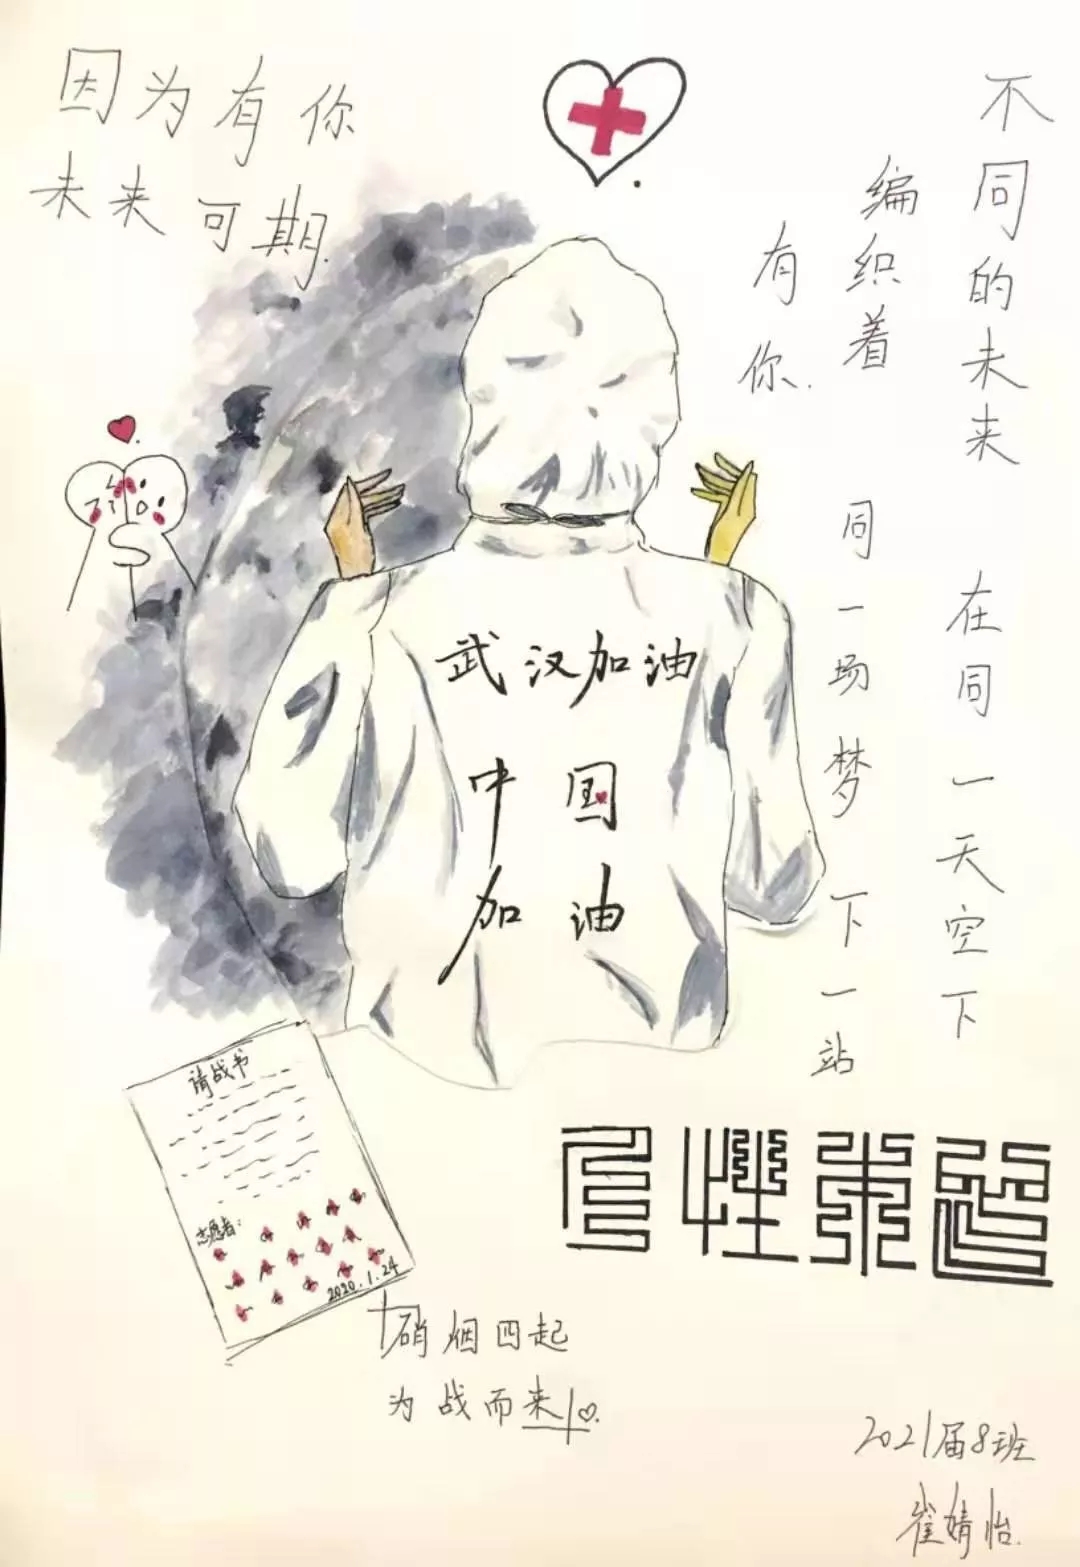 因为有你
未来可期
不同的未来 在同一天空下
编织着 同一场梦 下一站
有你
武汉加油
中国
加油
请战书
志愿者：
2020.1.24
硝烟四起
为战而来
2021届8班
崔婧怡